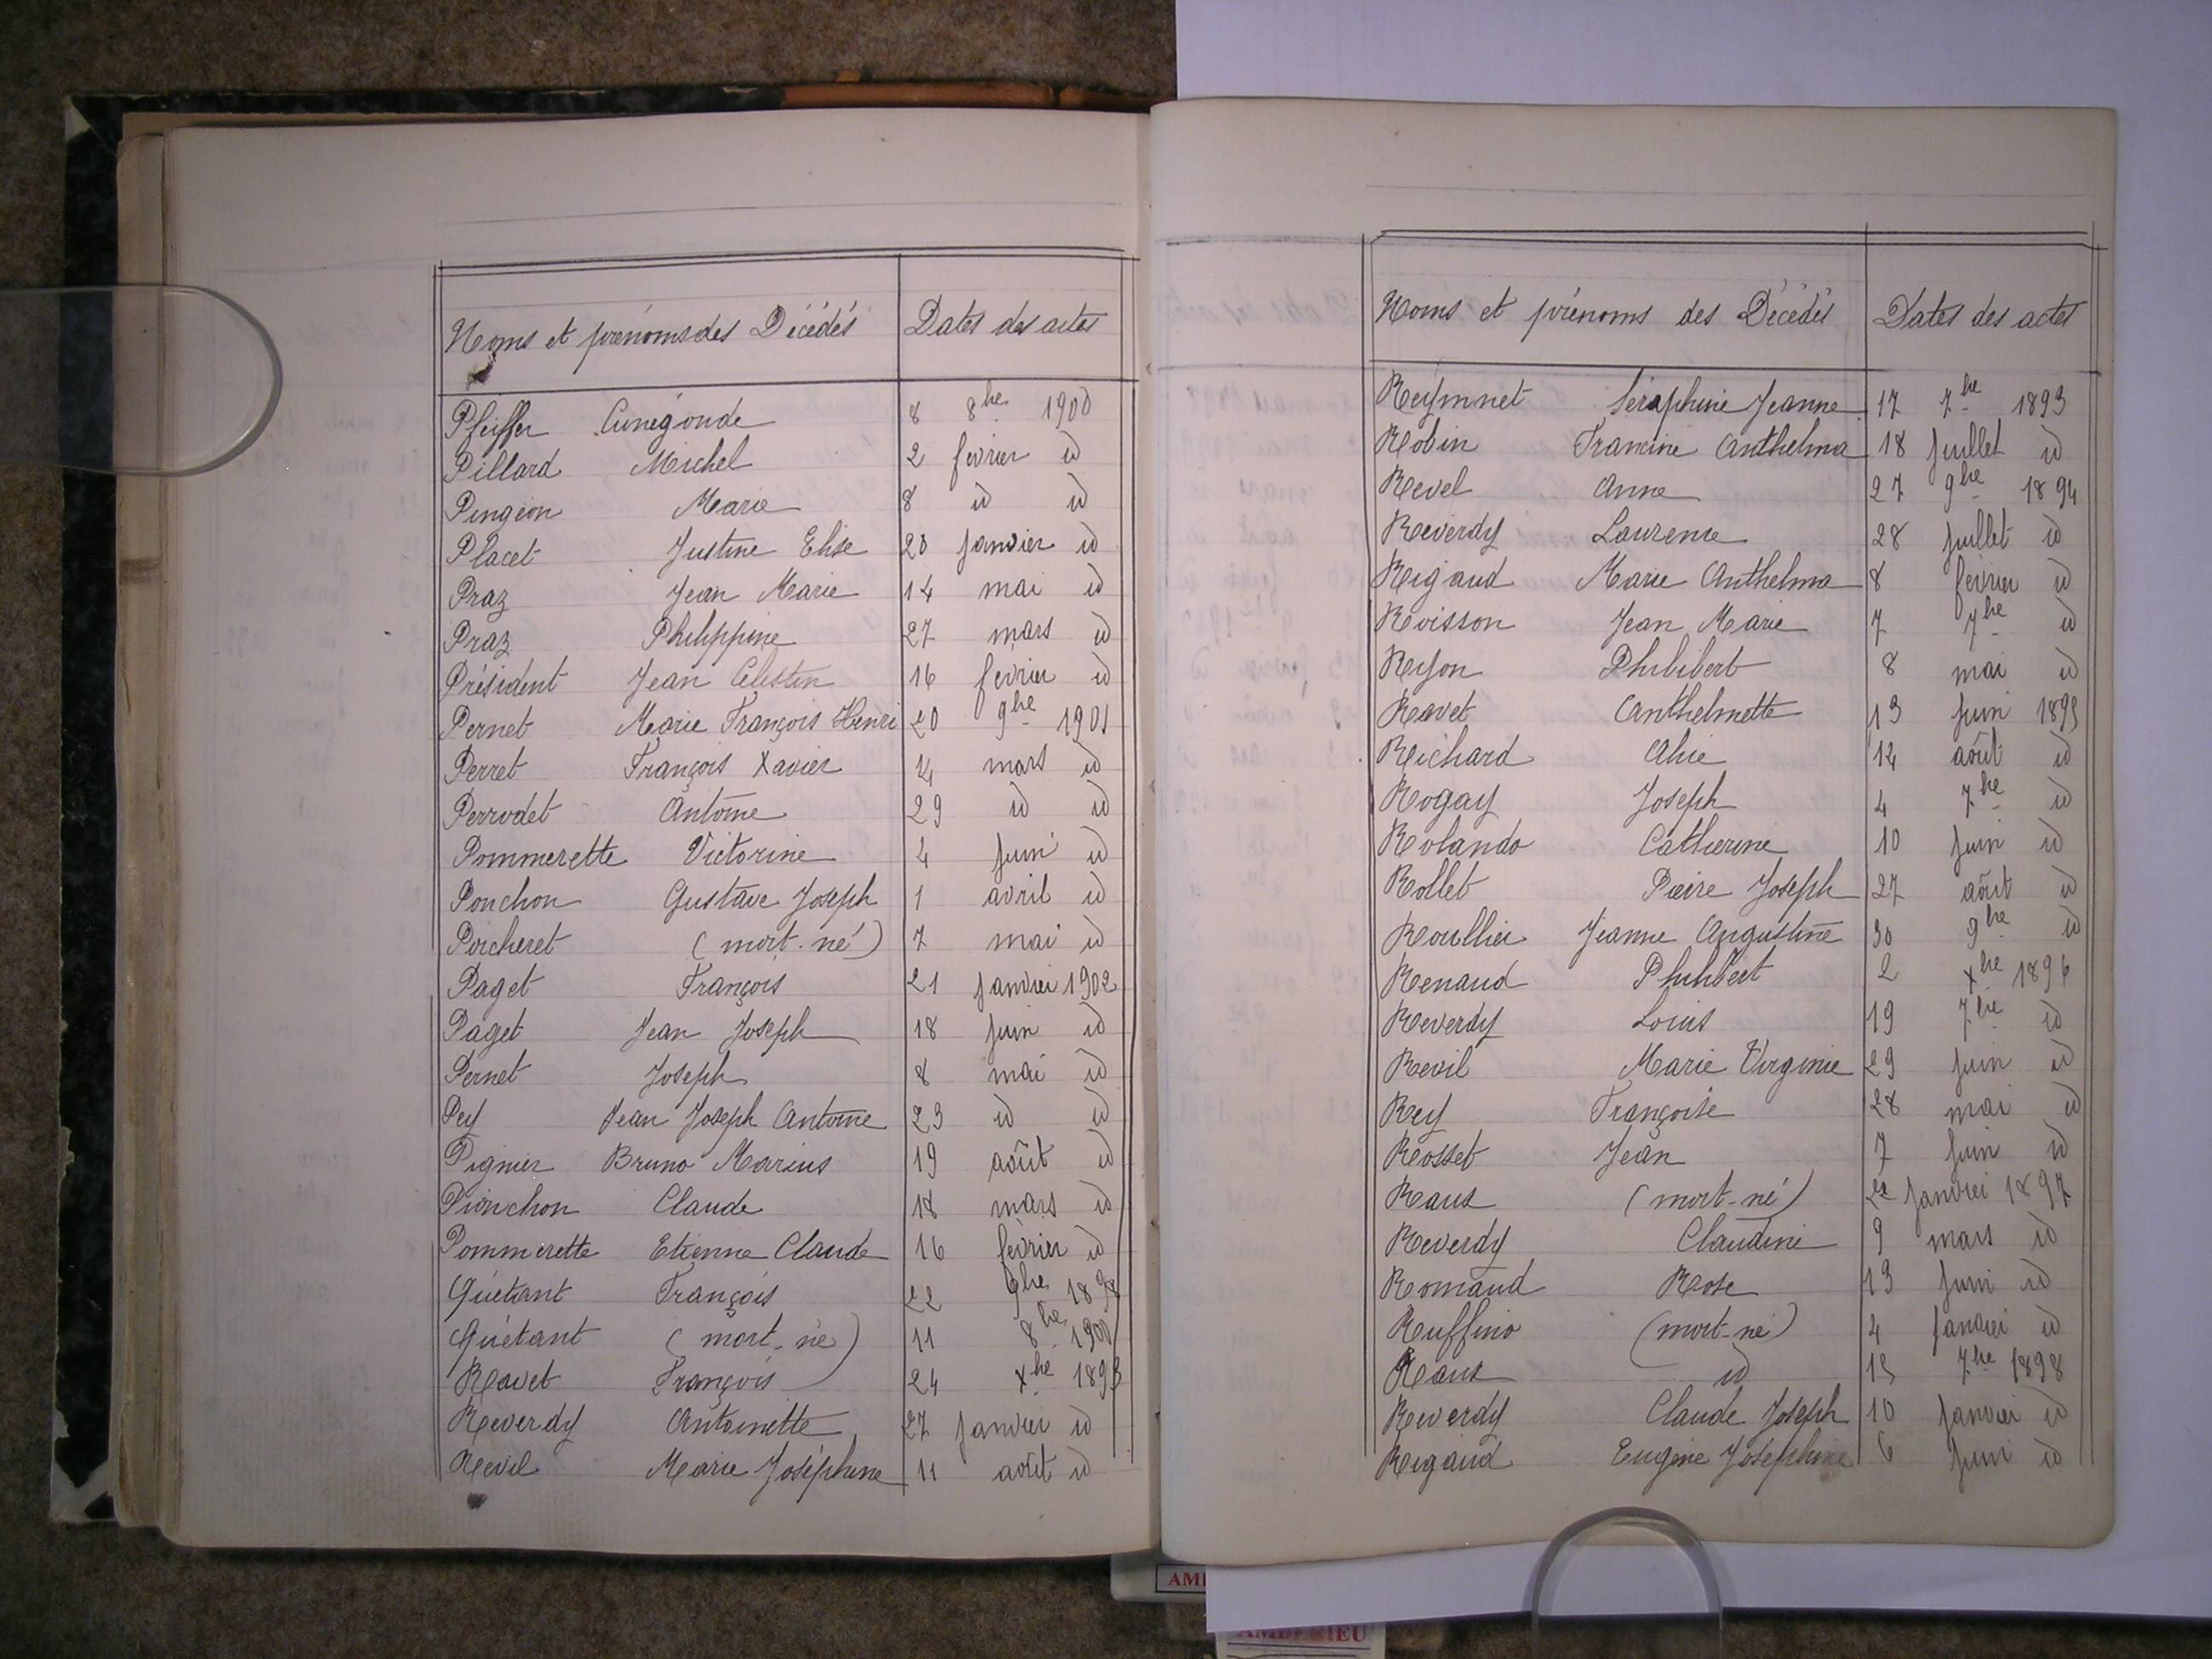 Noms et prénoms des Décédés Dates des actes
Pfeiffer Cunégonde 8 8bre 1900
Pillard Michel 2 février id
Pingeon Marie 8 id id
Placet Justine Elise 20 janvier id
Praz Jean Marie 14 mai id
Praz Philippine 27 mars id
Président Jean Célestin 16 février id
Pernet Marie François Henri 20 9bre 1901
Perret François Xavier 14 mars id
Perrodet Antoine 29 id id
Pommerette Victorine 4 juin id
Ponchon Gustave Joseph 1 avril id
Porcheret (mort-né) 7 mai id
Paget François 21 janvier 1902
Paget Jean Joseph 18 juin id
Pernet Joseph 8 mai id
Pey Jean Joseph Antoine 23 id id
Pignier Bruno Marius 19 août id
Pionchon Claude 18 mars id
Pommerette Etienne Claude 16 février id
Quétant François 22 9bre 1898
Quétant (mort-né) 11 8bre 1900
Ravet François 24 xbre 1893
Reverdy Antoinette 27 janvier id
Revil Marie Joséphine 11 août id
Noms et prénoms des Décédés Dates des actes
Reymnet Séraphine Jeanne 17 7bre 1893
Robin Francine Anthelma 18 juillet id
Revel Anne 27 9bre 1894
Reverdy Laurence 28 juillet id
Rigaud Marie Anthelma 8 février id
Roisson Jean Marie 7 7bre id
Ryon Philibert 8 mai id
Ravet Anthelmette 13 juin 1895
Richard Alice 14 août id
Rogay Joseph 4 7bre id
Rolando Catherine 10 juin id
Rollet Pierre Joseph 27 août id
Roullier Jeanne Augustine 30 9bre id
Renaud Philibert 2 xbre 1896
Reverdy Louis 19 7bre id
Revil Marie Virginie 29 juin id
Rey Françoise 28 mai id
Rosset Jean 7 juin id
Raus (mort-né) 22 janvier 1897
Reverdy Claudine 9 mars id
Romand Rose 13 juin id
Ruffino (mort-né) 4 janvier id
Raus id 15 7bre 1898
Reverdy Claude Joseph 10 janvier id
Rigaud Eugénie Joséphine 6 juin id